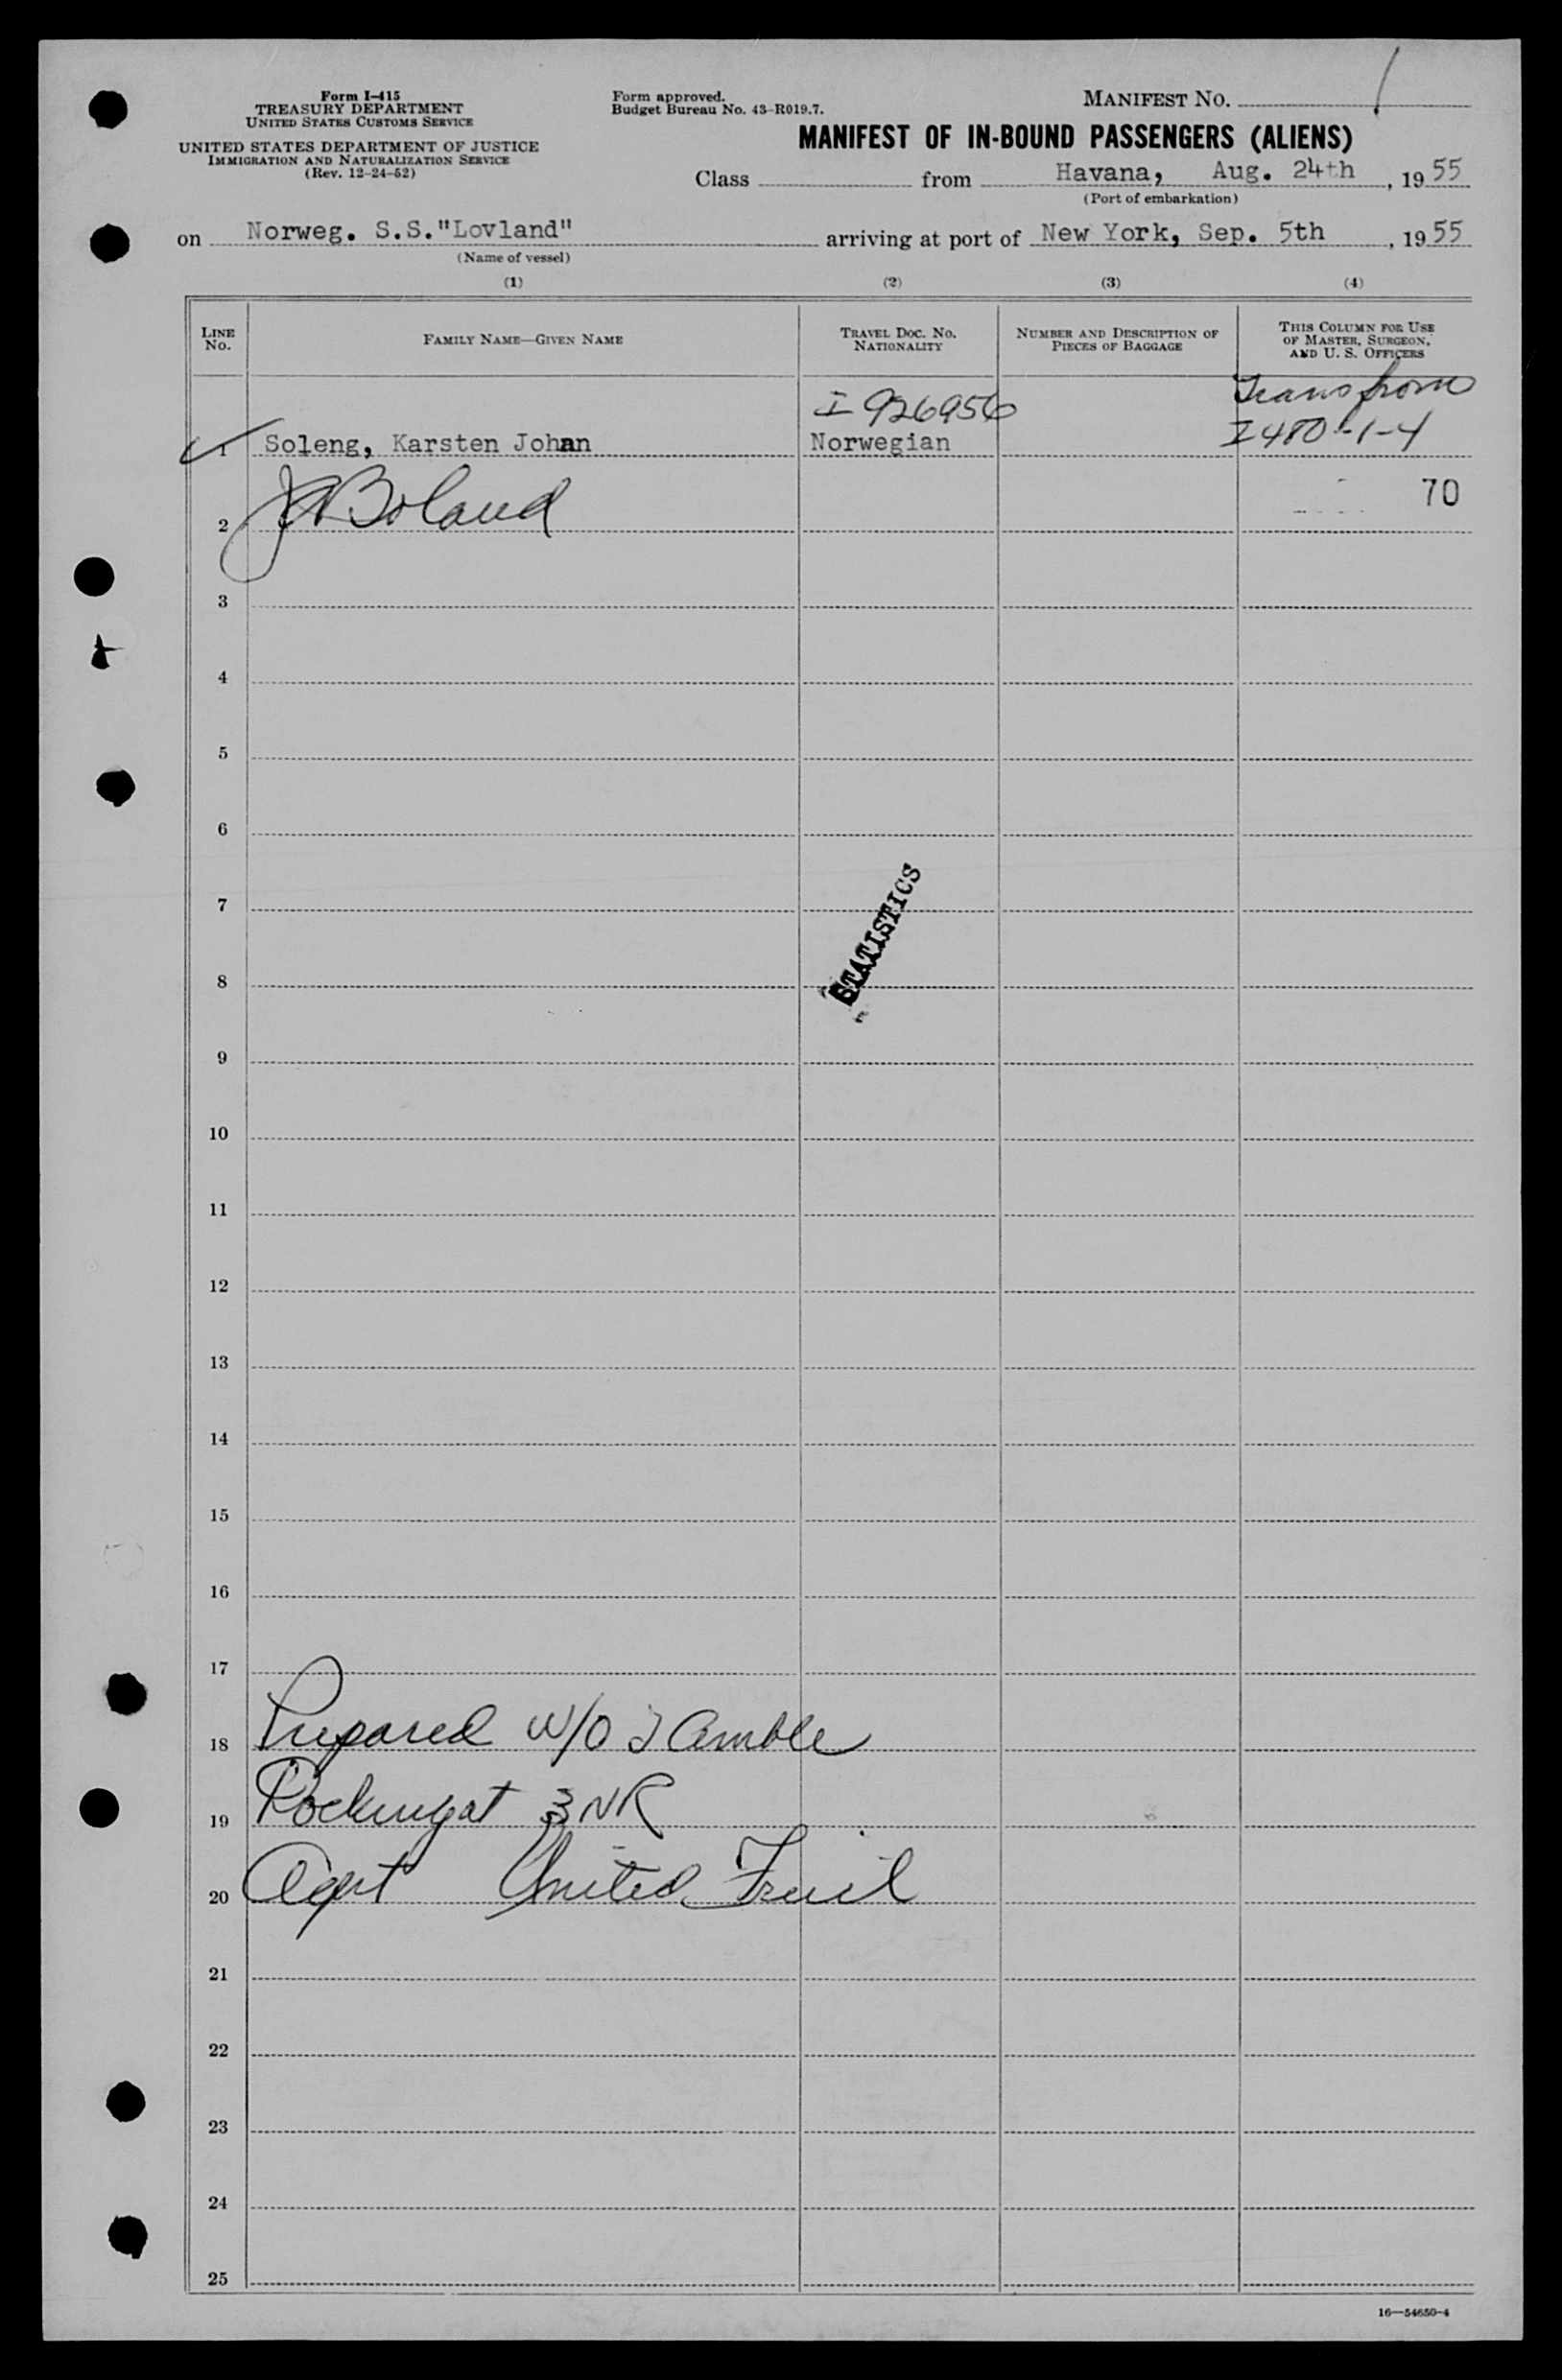 Form I-415
TREASURY DEPARTMENT
UNITED STATES CUSTOMS SERVICE
UNITED STATES DEPARTMENT OF JUSTICE
IMMIGRATION AND NATURALIZATION SERVICE
(Rev. 12-24-52)
Form approved.
Budget Bureau No. 43-R019.7.
MANIFEST NO. 1
MANIFEST OF IN-BOUND PASSENGERS (ALIENS)
Class from Havana, Aug. 24th, 1955
(Port of embarkation)
on Norweg. S.S."Lovland" arriving at port of New York, Sep. 5th, 1955
(Name of vessel)
(1) (2) (3) (4)
LINE NO. FAMILY NAME—GIVEN NAME TRAVEL DOC. NO. NATIONALITY NUMBER AND DESCRIPTION OF PIECES OF BAGGAGE THIS COLUMN FOR USE OF MASTER, SURGEON, AND U. S. OFFICERS
I 926956 Trans from
1 Soleng, Karsten Johan Norwegian I 480-1-4
70
2 Boland
3
4
5
6
7
STATISTICS
8
9
10
11
12
13
14
15
16
17
18 Prepared W/O
19 3 NR
20 Agent United Fruit
21
22
23
24
25
16—54650-4